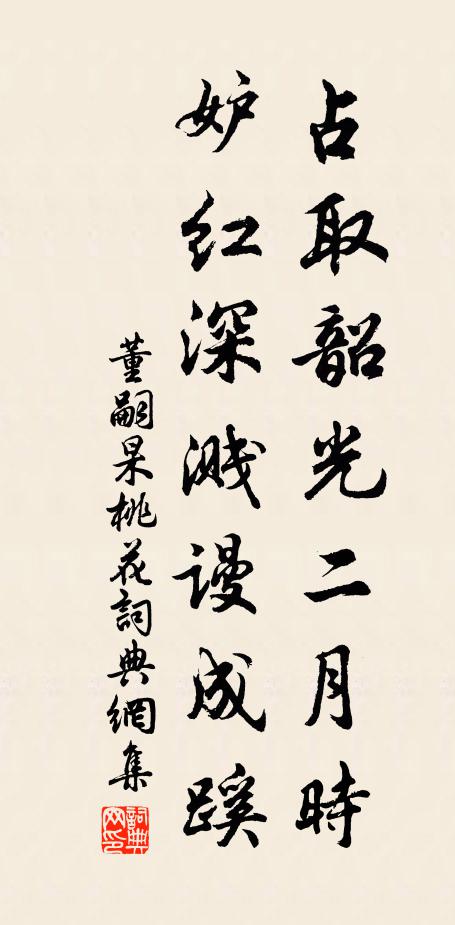 占取韶光二月時
妒红深溅謾成蹊
董嗣杲桃花詞典網集
詞典网印